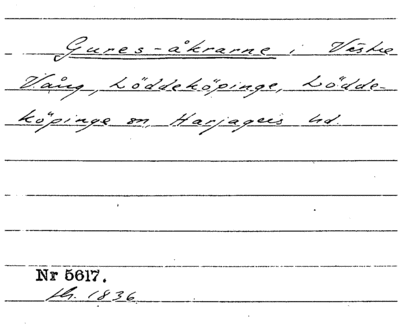 Gures-åkrarne i Västra
Vång, Löddeköpinge, Lödde-
köpinge sn, Harjagers hd.
Nr 5617.
fh. 1836